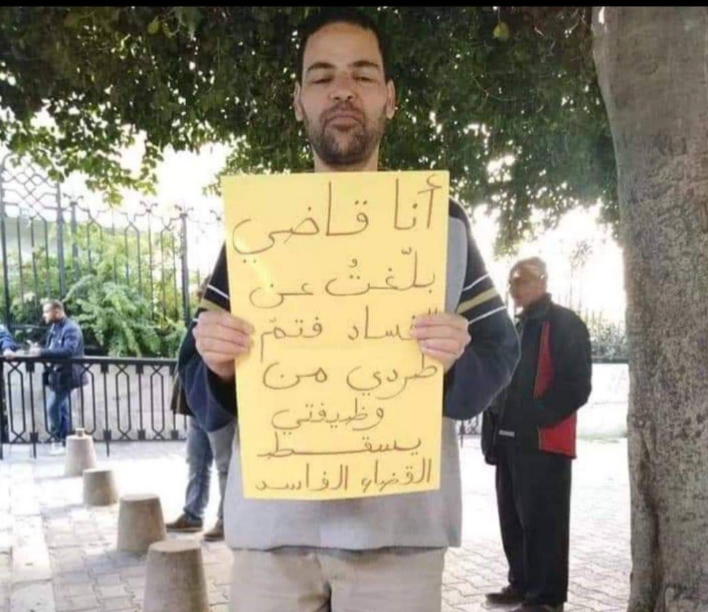 أنا قاضي
بلّغتُ عن
الفساد فتمّ
طردي من
وظيفتي
يسقط
القضاء الفاسد